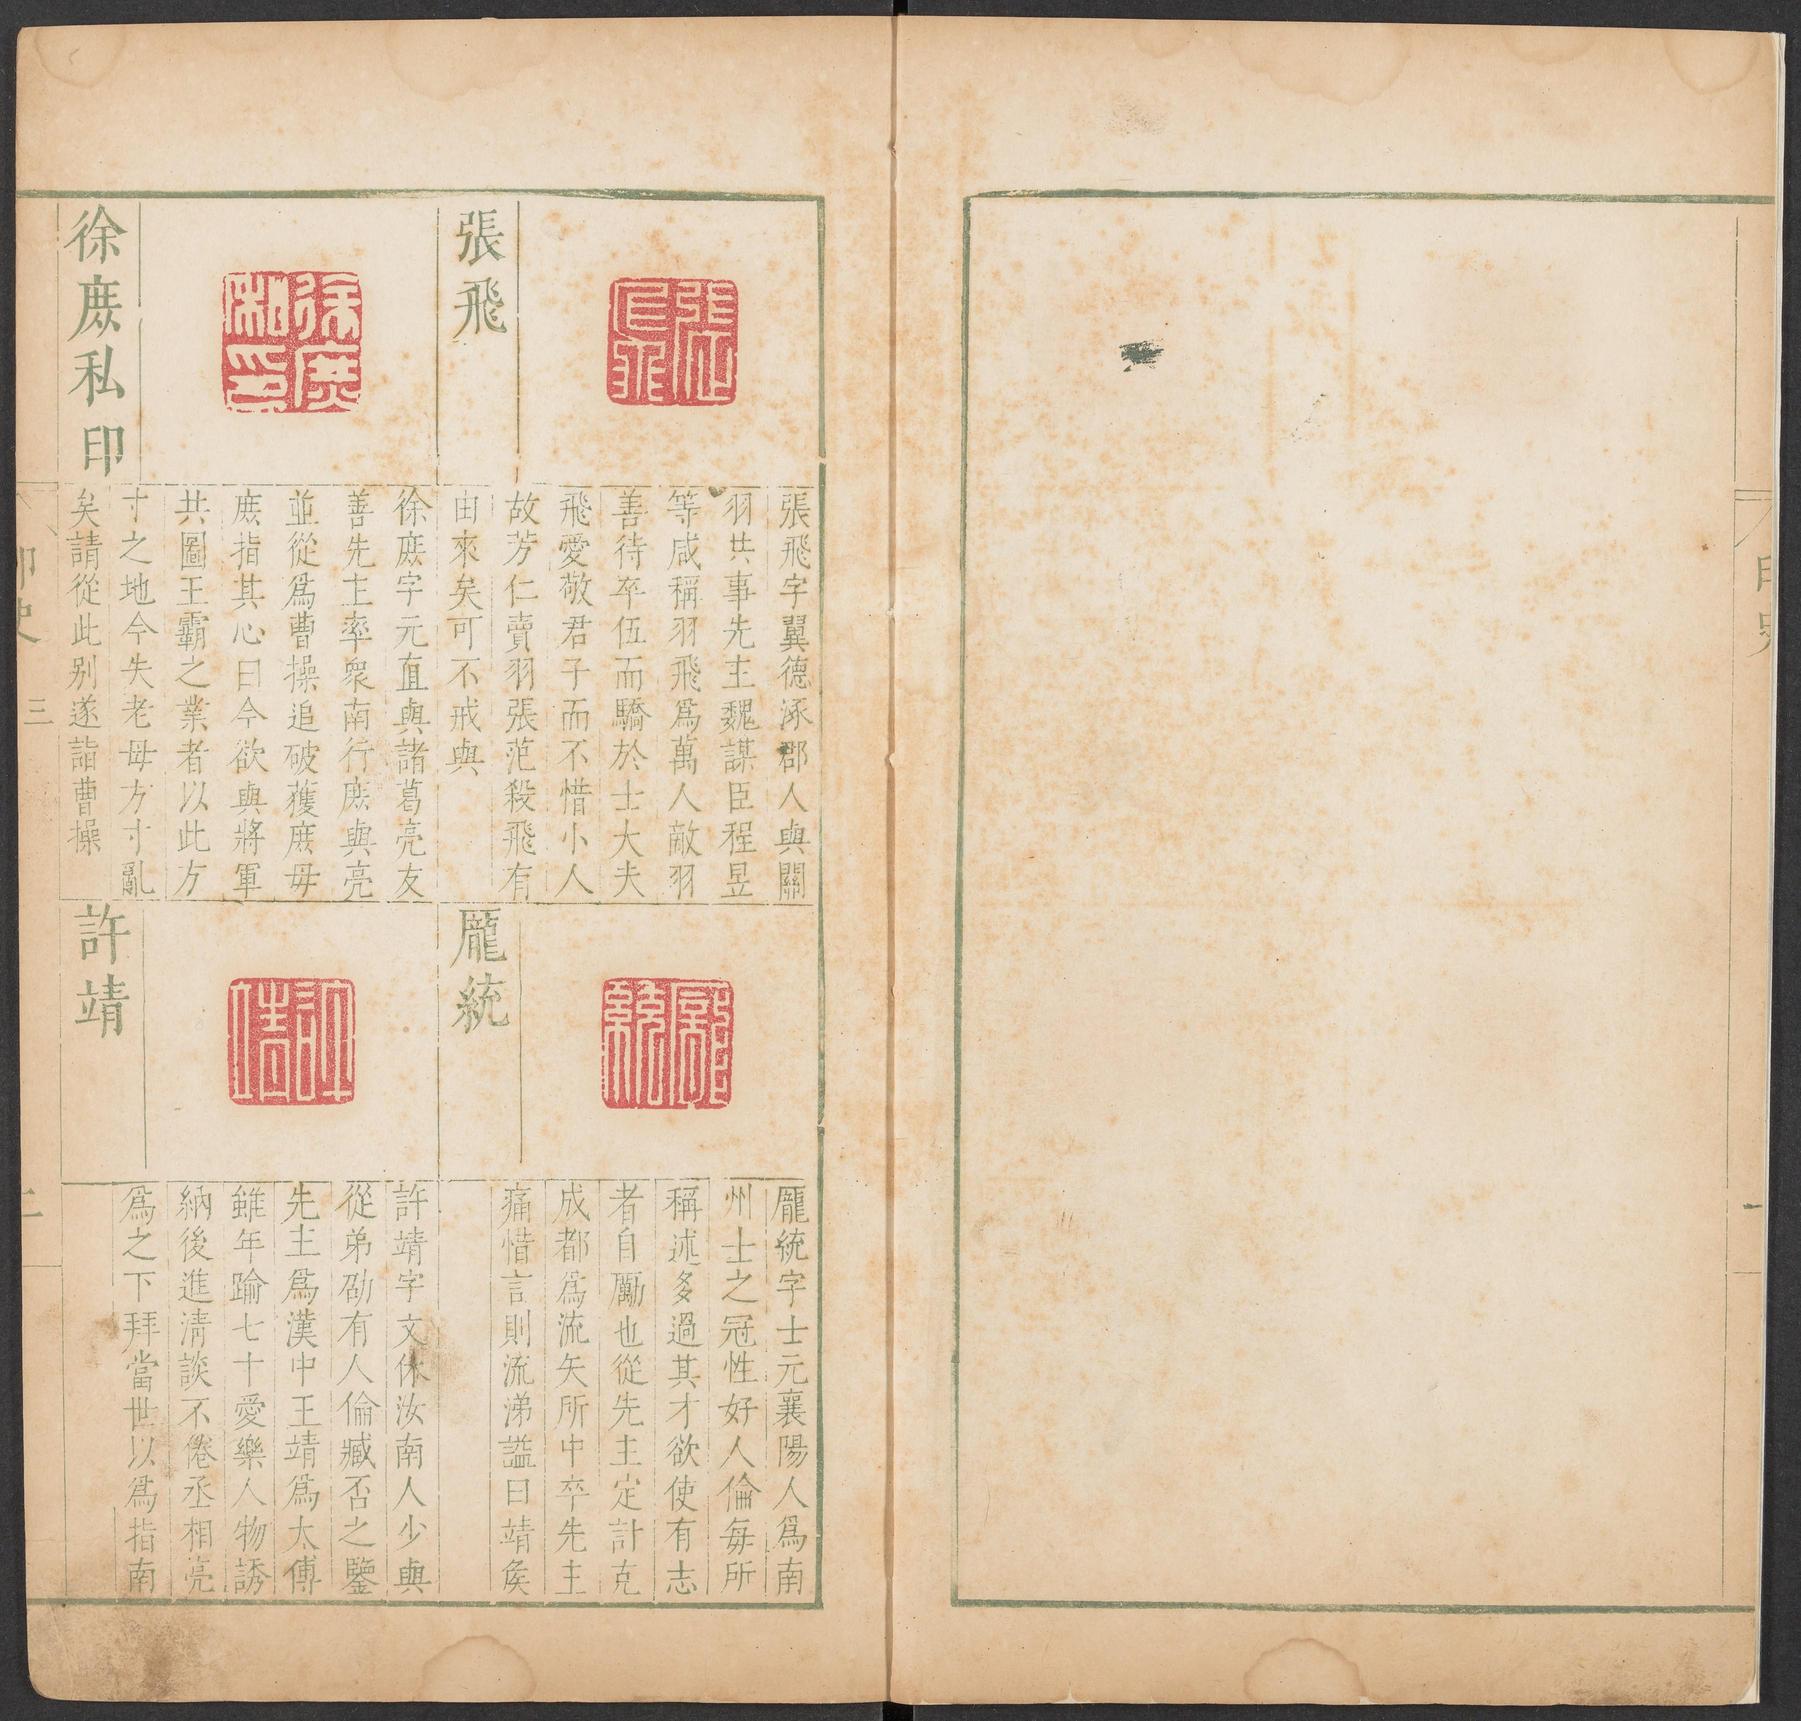 張飛
張飛字翼德涿郡人與關
羽共事先主魏謀臣程昱
等咸稱羽飛爲萬人敵羽
善待卒伍而驕於士大夫
飛愛敬君子而不惜小人
故芳仁賣羽張范殺飛有
由來矣可不戒與
徐庶私印
徐庶字元直與諸葛亮友
善先主率衆南行庶與亮
並從爲曹操追破獲庶母
庶指其心曰今欲與將軍
共圖王霸之業者以此方
寸之地今失老母方寸亂
矣請從此别遂詣曹操
龐統
龐統字士元襄陽人爲南
州士之冠性好人倫每所
稱述多過其才欲使有志
者自勵也從先主定計克
成都爲流矢所中卒先主
痛惜言則流涕謚曰靖矦
許靖
許靖字文休汝南人少與
從弟劭有人倫臧否之鑒
先主爲漢中王靖爲太傅
雖年踰七十愛樂人物誘
納後進清談不倦丞相亮
爲之下拜當世以爲指南
印史
三
二